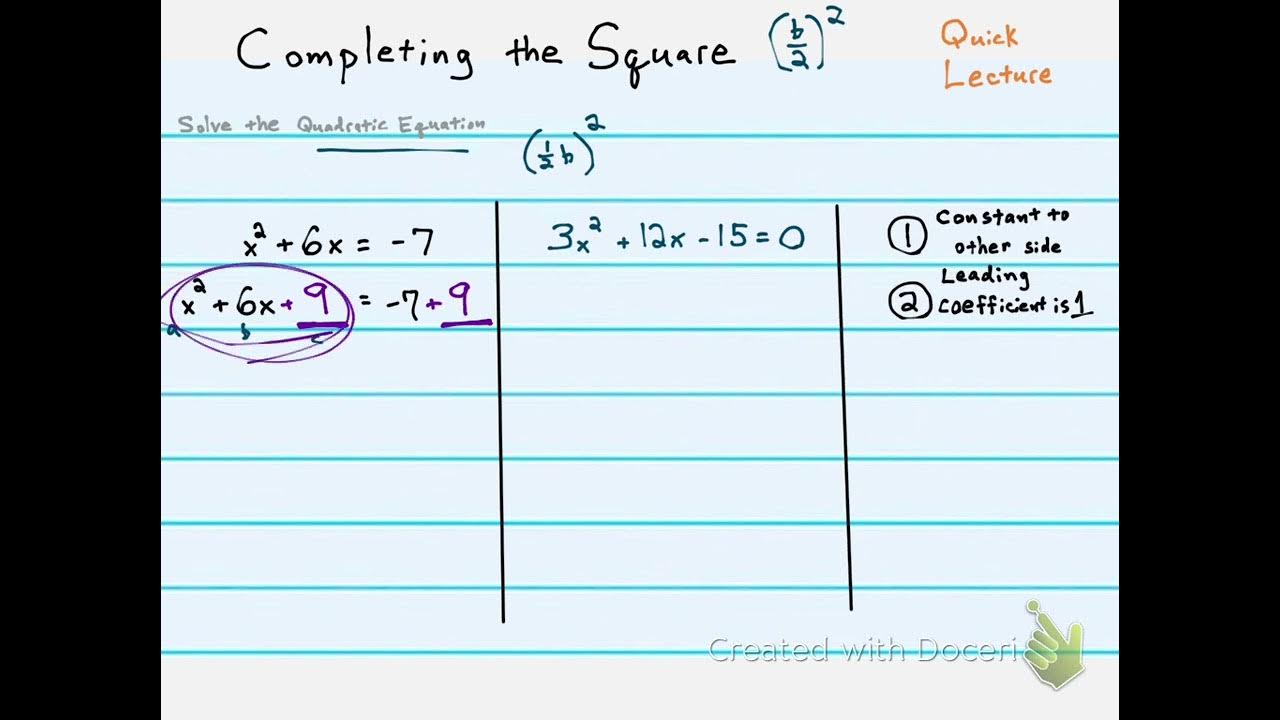 Completing the Square (b/2)²
Quick
Lecture
Solve the Quadratic Equation
(½b)²
x² + 6x = -7
x² + 6x + 9 = -7 + 9
a b c
3x² + 12x - 15 = 0
① Constant to
other side
② Leading
coefficient is 1
Created with Doceri